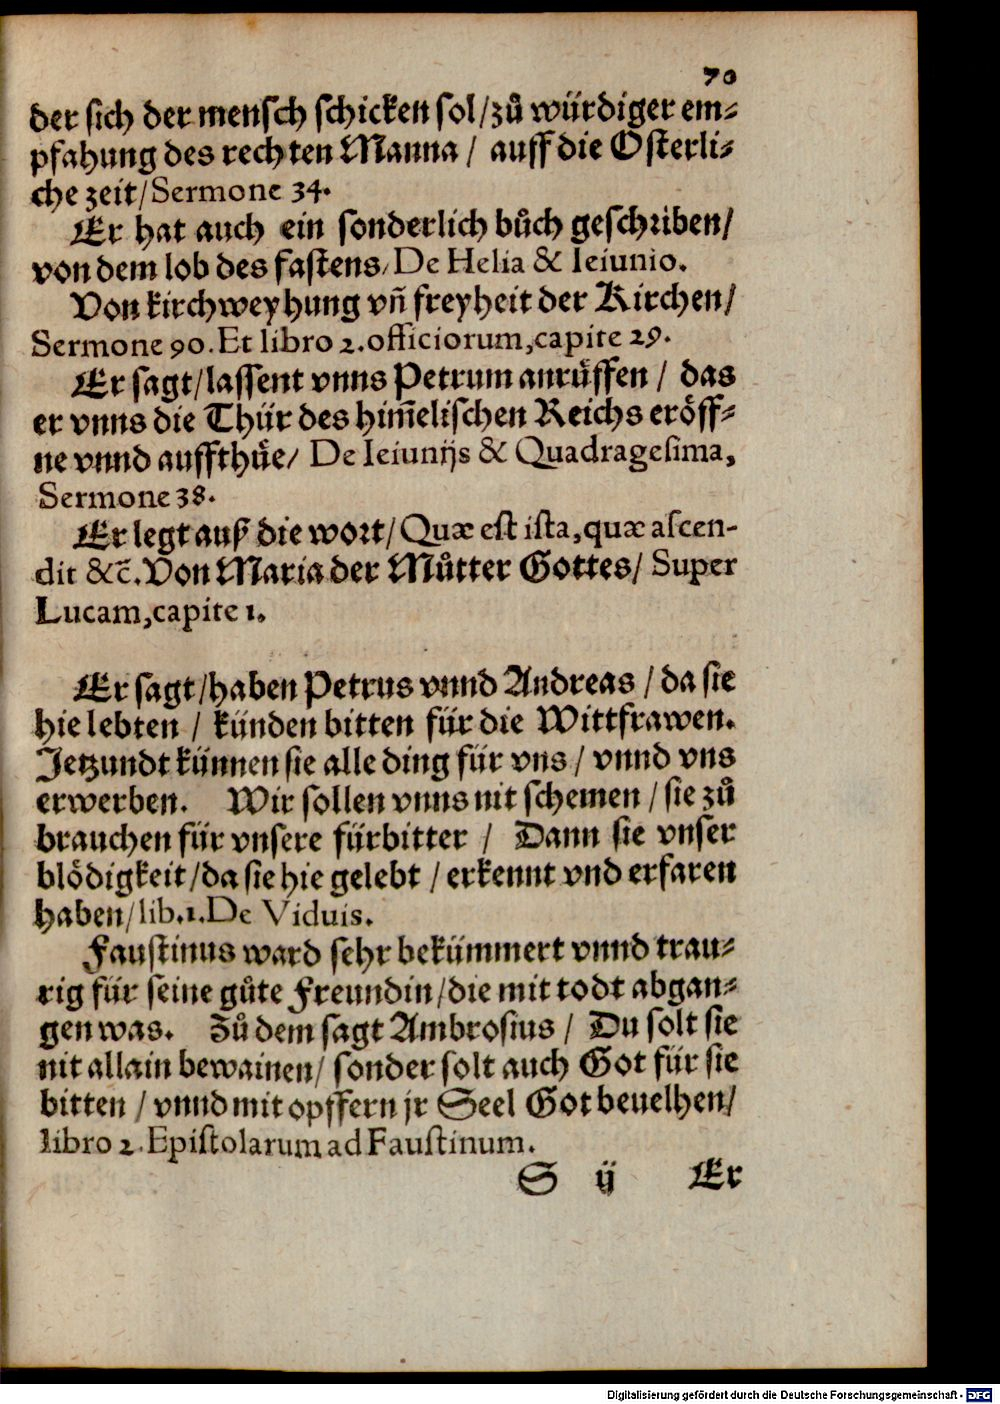 70
der sich der mensch schicken sol/zuͦ würdiger em-
pfahung des rechten Manna / auff die Osterli-
che zeit/Sermone 34.
Er hat auch ein sonderlich buͦch geschriben/
von dem lob des fastens/De Helia & Ieiunio.
Von kirchweyhung vn̄ freyheit der Kirchen/
Sermone 90. Et libro 2.officiorum,capite 29.
Er sagt/lassent vnns Petrum anruͤffen / das
er vnns die Thür des him̄elischen Reichs eröff-
ne vnnd auffthuͤe/ De Ieiunijs & Quadragesima,
Sermone 38.
Er legt auß die wort/Quæ est ista,quæ ascen-
dit &c̄.Von Maria der Muͦtter Gottes/ Super
Lucam,capite 1.
Er sagt/haben Petrus vnnd Andreas /da sie
hie lebten / künden bitten für die Wittfrawen.
Jetzundt künnen sie alle ding für vns / vnnd vns
erwerben. Wir sollen vnns nit schemen /sie zuͦ
brauchen für vnsere fürbitter / Dann sie vnser
blödigkeit/da sie hie gelebt /erkennt vnd erfaren
haben/lib.1.De Viduis.
Faustinus ward sehr bekümmert vnnd trau-
rig für seine guͦte Freundin/die mit todt abgan-
gen was. Zuͦ dem sagt Ambrosius / Du solt sie
nit allain bewainen/ sonder solt auch Got für sie
bitten / vnnd mit opffern jr Seel Got beuelhen/
libro 2.Epistolarum ad Faustinum.
S ij Er
Digitalisierung gefördert durch die Deutsche Forschungsgemeinschaft - DFG